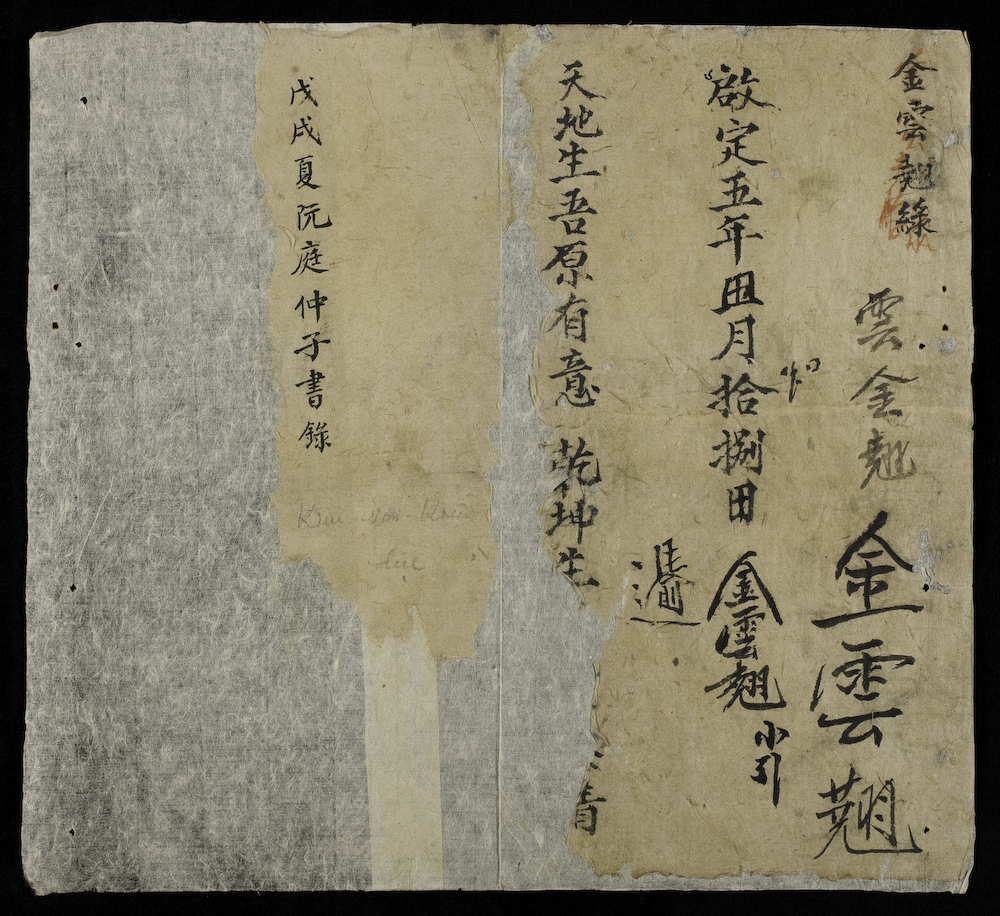 金雲翹錄
雲金翹
金雲翹
啟定五年田月拾捌田
金雲翹
小引
天地生吾原有意 乾坤生
青
戊戌夏阮庭仲子書錄